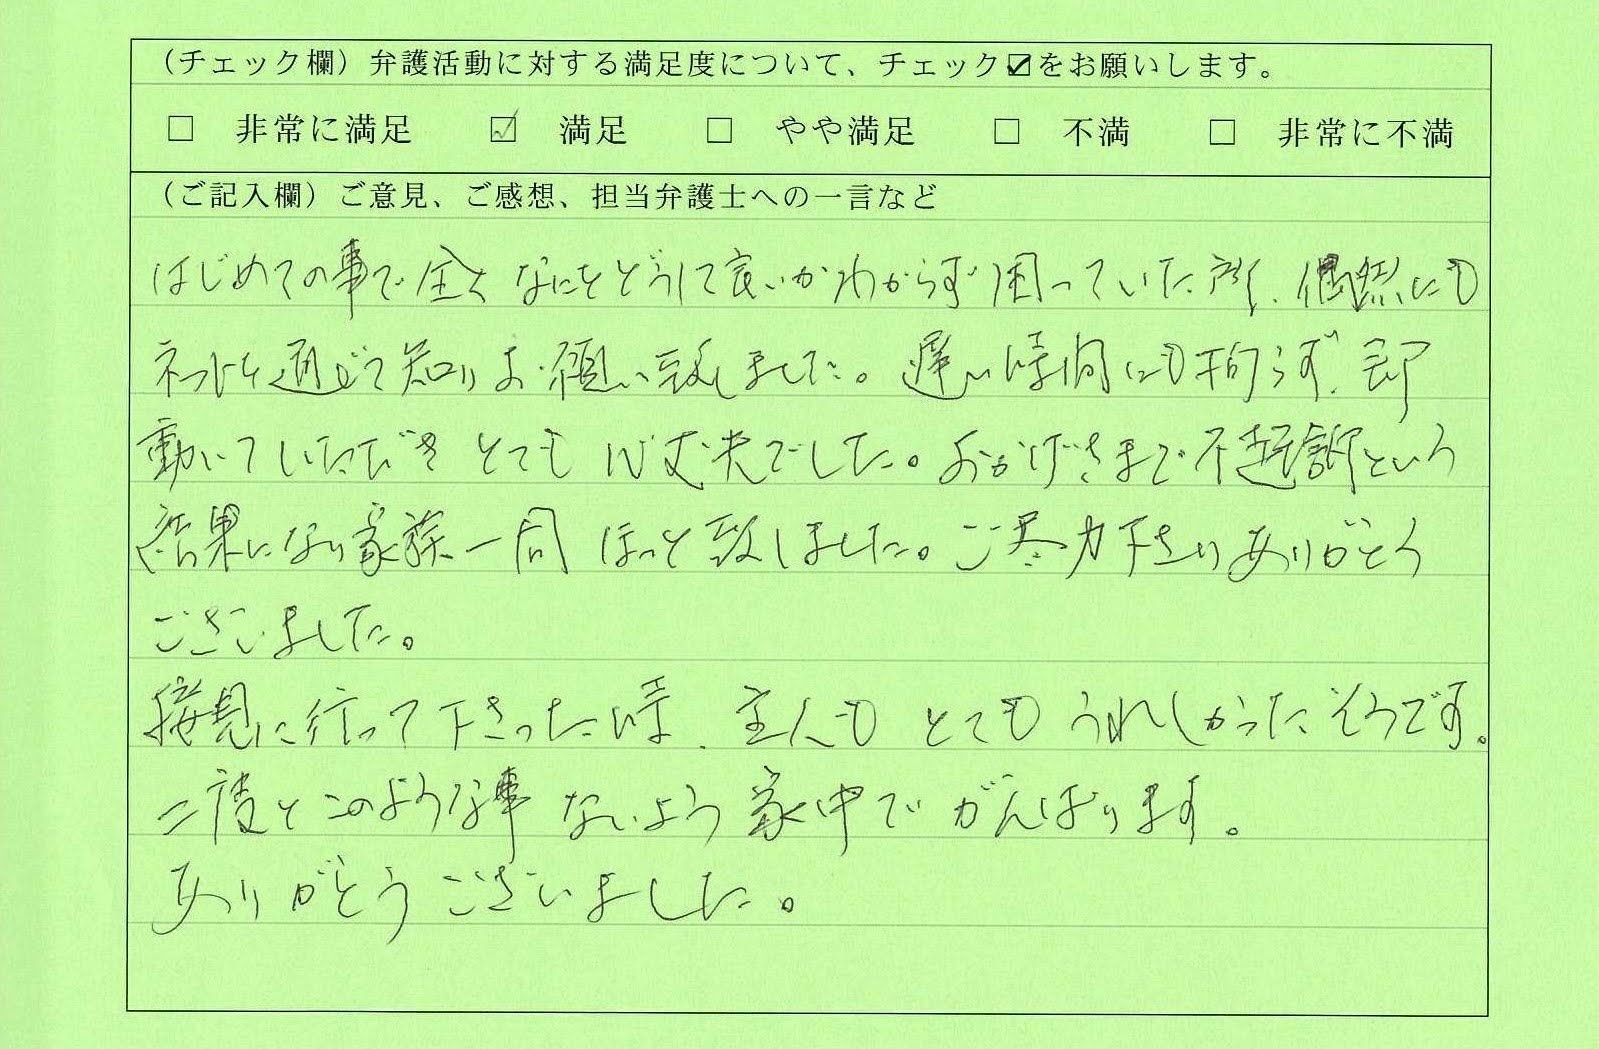 （チェック欄）弁護活動に対する満足度について、チェック☑をお願いします。
□ 非常に満足 ☑ 満足 □ やや満足 □ 不満 □ 非常に不満
（ご記入欄）ご意見、ご感想、担当弁護士への一言など
はじめての事で全くなにをどうして良いかわからず困っていた所、偶然にも
ネットを通じて知りお願い致しました。遅い時間にも拘らず、即
動いていただき とても 心丈夫でした。おかげさまで不起訴という
結果になり家族一同 ほっと致しました。ご尽力下さりありがとう
ございました。
接見に行って下さった時、主人も とても うれしかったそうです。
二度とこのような事 ないよう 家中で がんばります。
ありがとうございました。